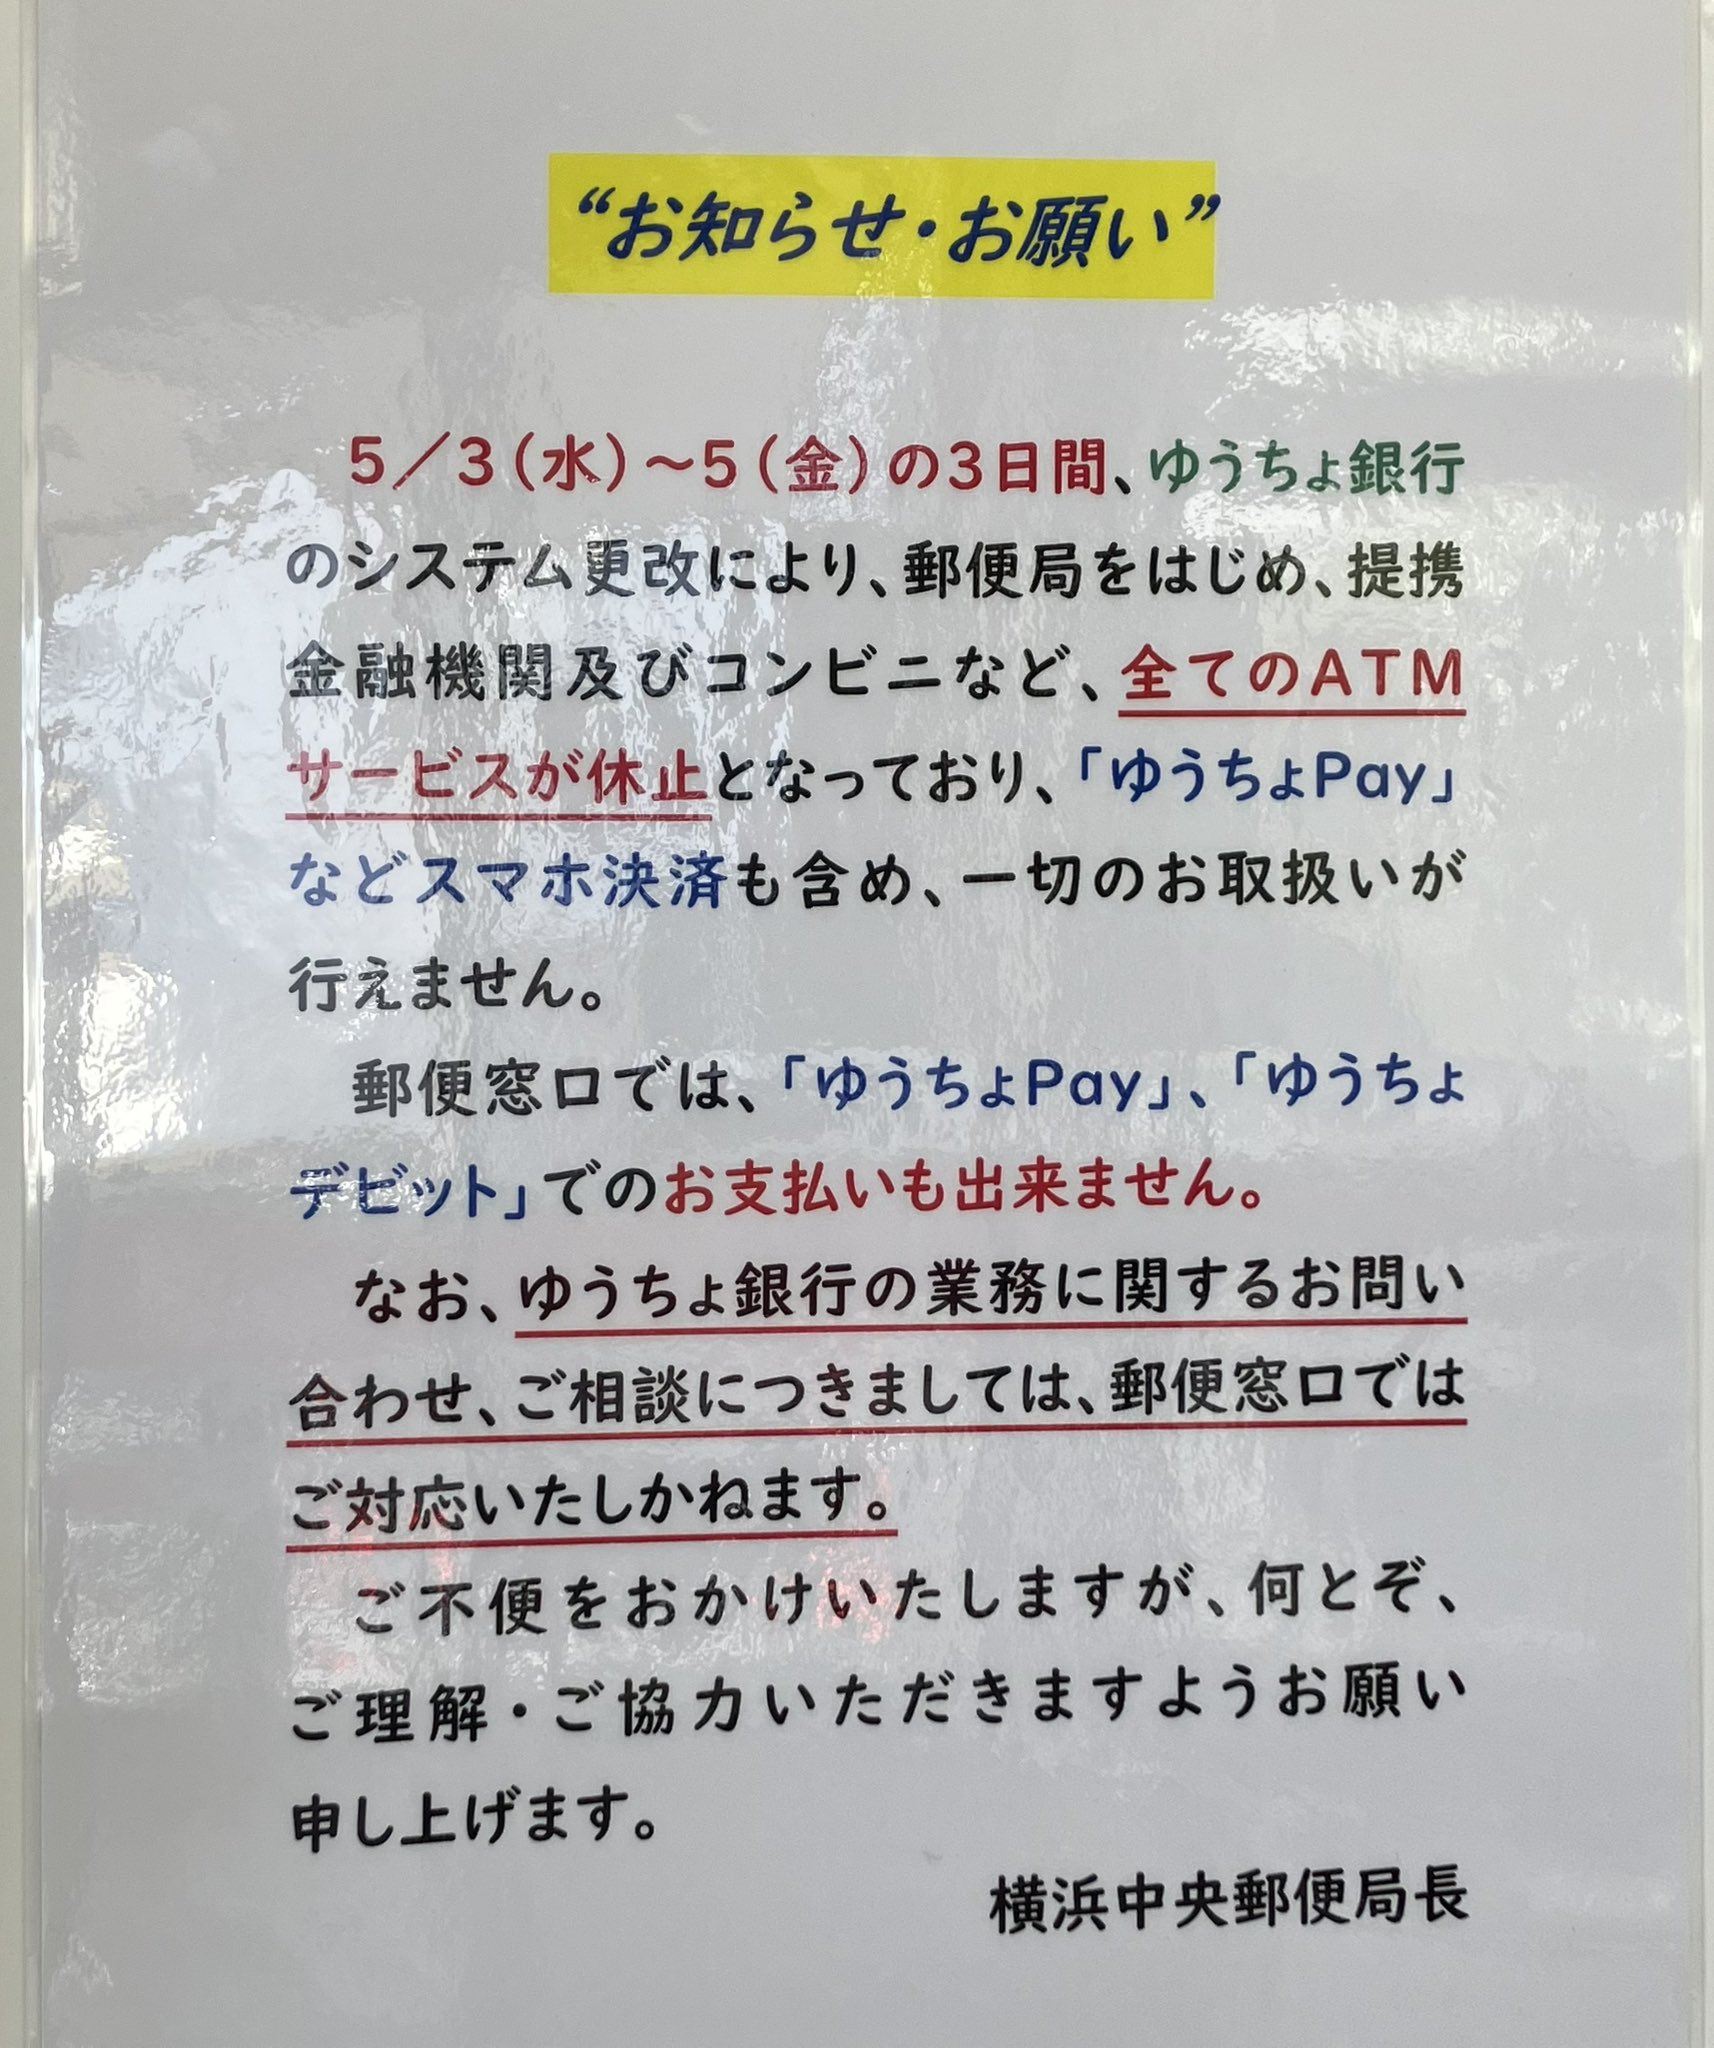 “お知らせ・お願い”
5／3(水)～5(金)の3日間、ゆうちょ銀行
のシステム更改により、郵便局をはじめ、提携
金融機関及びコンビニなど、全てのATM
サービスが休止となっており、「ゆうちょPay」
などスマホ決済も含め、一切のお取扱いが
行えません。
郵便窓口では、「ゆうちょPay」、「ゆうちょ
デビット」でのお支払いも出来ません。
なお、ゆうちょ銀行の業務に関するお問い
合わせ、ご相談につきましては、郵便窓口では
ご対応いたしかねます。
ご不便をおかけいたしますが、何とぞ、
ご理解・ご協力いただきますようお願い
申し上げます。
横浜中央郵便局長